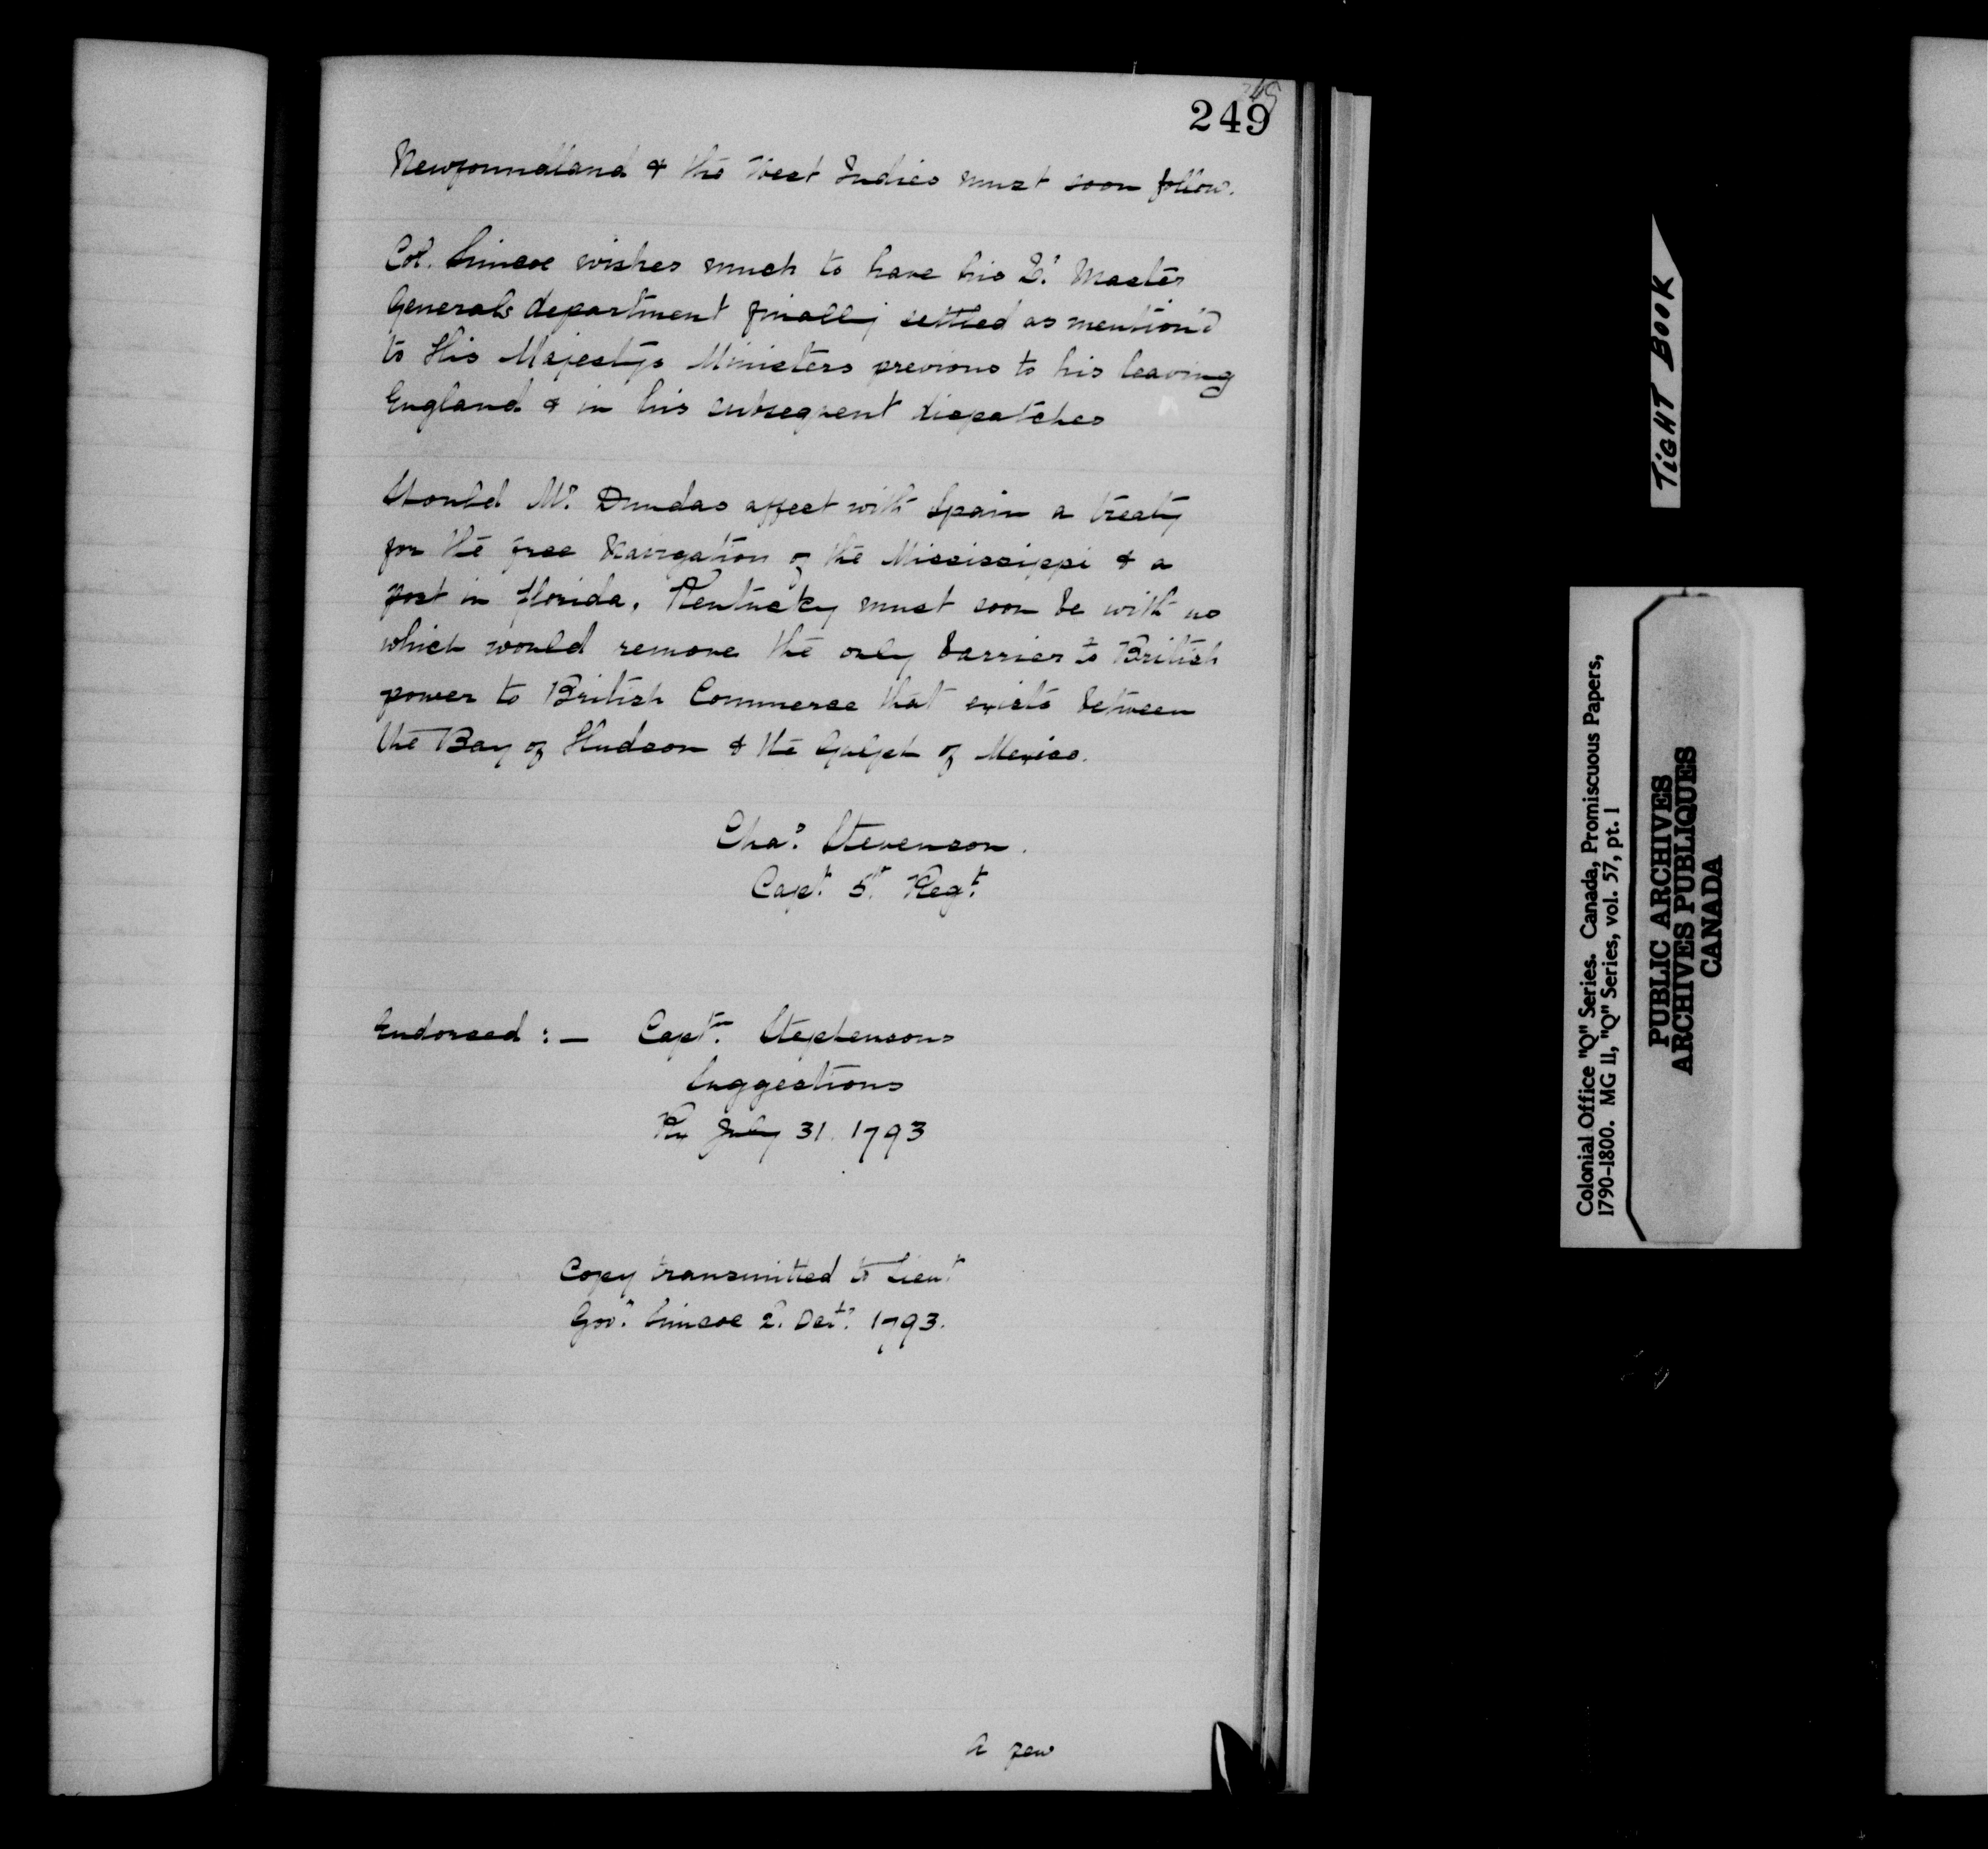 249
Newfoundland & the West Indies must soon follow.
Col. Simcoe wishes much to have his Qr. Master
Generals department finally settled as mention'd
to His Majestys Ministers previous to his leaving
England & in his subsequent dispatches
Would Mr. Dundas affect with Spain a treaty
for the free Navigation of the Mississippi & a
post in Florida, Kentucky must soon be with us
which would remove the only barrier to British
power to British Commerce that exists between
the Bay of Hudson & the Gulph of Mexico.
Chas. Stevenson.
Capt. 5th Regt.
Endorsed :— Captn. Stephensons
Suggestions
Rx July 31. 1793
Copy transmitted to Lieut
Govr. Simcoe 2. Octr. 1793.
A few
TIGHT BOOK
Colonial Office "Q" Series. Canada, Promiscuous Papers,
1790-1800. MG 11, "Q" Series, vol. 57, pt. 1
PUBLIC ARCHIVES
ARCHIVES PUBLIQUES
CANADA